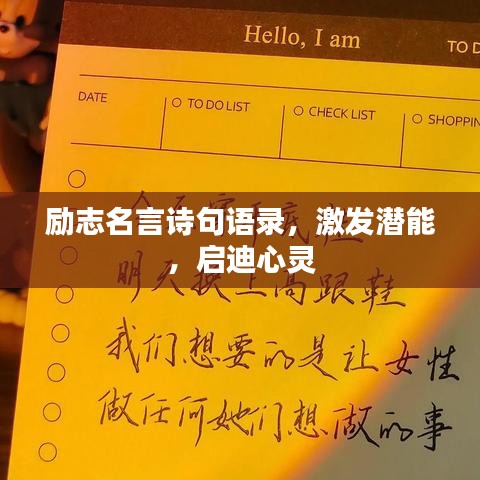 Hello, I am
TO D
DATE
TO DO LIST
CHECK LIST
SHOPPIN
励志名言诗句语录，激发潜能
，启迪心灵
明天换上高跟鞋
我们想要的是让女性
做任何她们想做的事